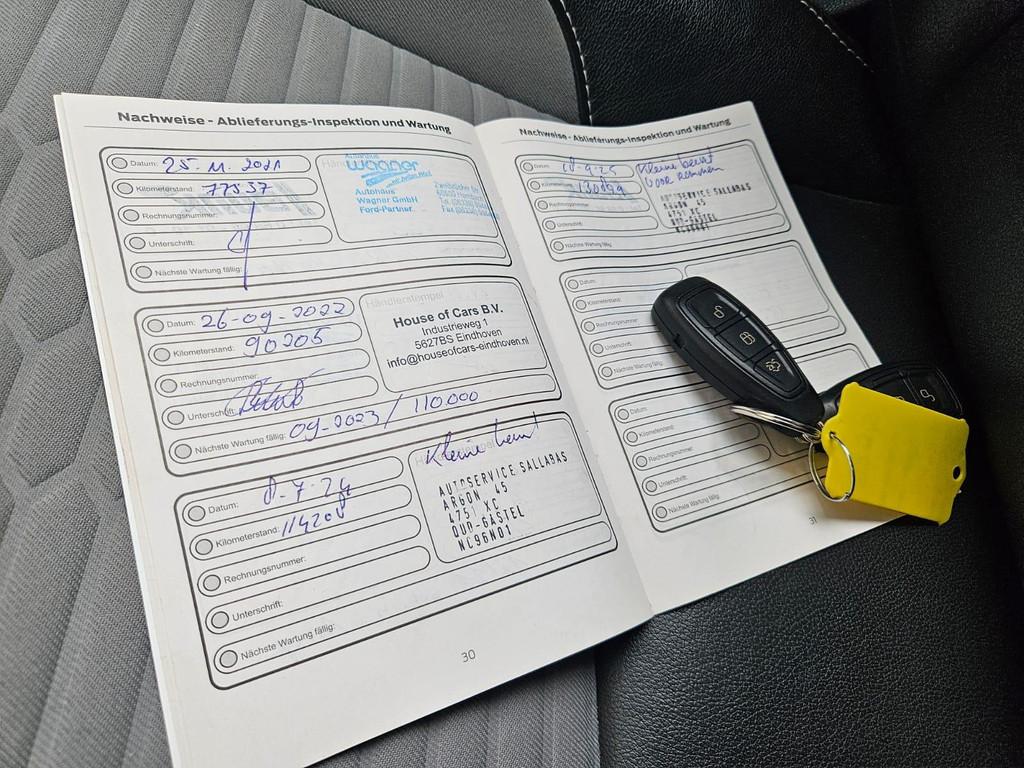 Nachweise - Ablieferungs-Inspektion und Wartung
Datum: 25. 11. 2021
Kilometerstand: 77537
Rechnungsnummer:
Unterschrift:
Nächste Wartung fällig:
Autohaus
wagner
Autohaus
Wagner GmbH
Ford-Partner.
Datum: 26-09-2022
Kilometerstand: 90205
Rechnungsnummer:
Unterschrift:
Nächste Wartung fällig: 09-2023 / 110.000
Händlerstempel
House of Cars B.V.
Industrieweg 1
5627BS Eindhoven
info@houseofcars-eindhoven.nl
Datum: 8-7-24
Kilometerstand: 114208
Rechnungsnummer:
Unterschrift:
Nächste Wartung fällig:
Kleine beurt
AUTOSERVICE SALLABAS
ARGON 45
4751 XC
OUD-GASTEL
NC96N01
30
Nachweise - Ablieferungs-Inspektion und Wartung
Datum: 18-9-25
Kilometerstand: 130899
Rechnungsnummer:
Unterschrift:
Nächste Wartung fällig:
Kleine beurt
Voor remmen
AUTOSERVICE SALLABAS
ARGON 45
4751 XC
OUD-GASTEL
Datum:
Kilometerstand:
Rechnungsnummer:
Unterschrift:
Nächste Wartung fällig:
Datum:
Kilometerstand:
Rechnungsnummer:
Unterschrift:
Nächste Wartung fällig:
31